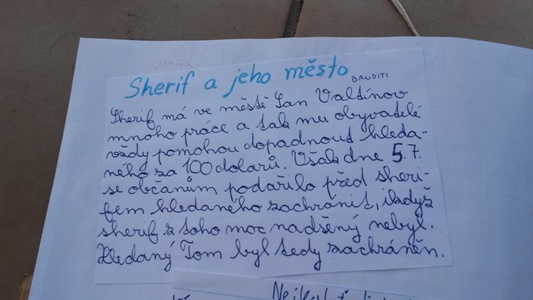 Sherif a jeho město
BANDITI
Sherif má ve městě San Valdínov
mnoho práce a tak mu obyvatelé
vždy pomohou dopadnout hleda-
ného za 100 dolarů. Však dne 5.7.
se občanům podařilo před sheri-
fem hledaného zachránit, ikdyž
sherif z toho moc nadšený nebyl.
Hledaný Tom byl tedy zachráněn.